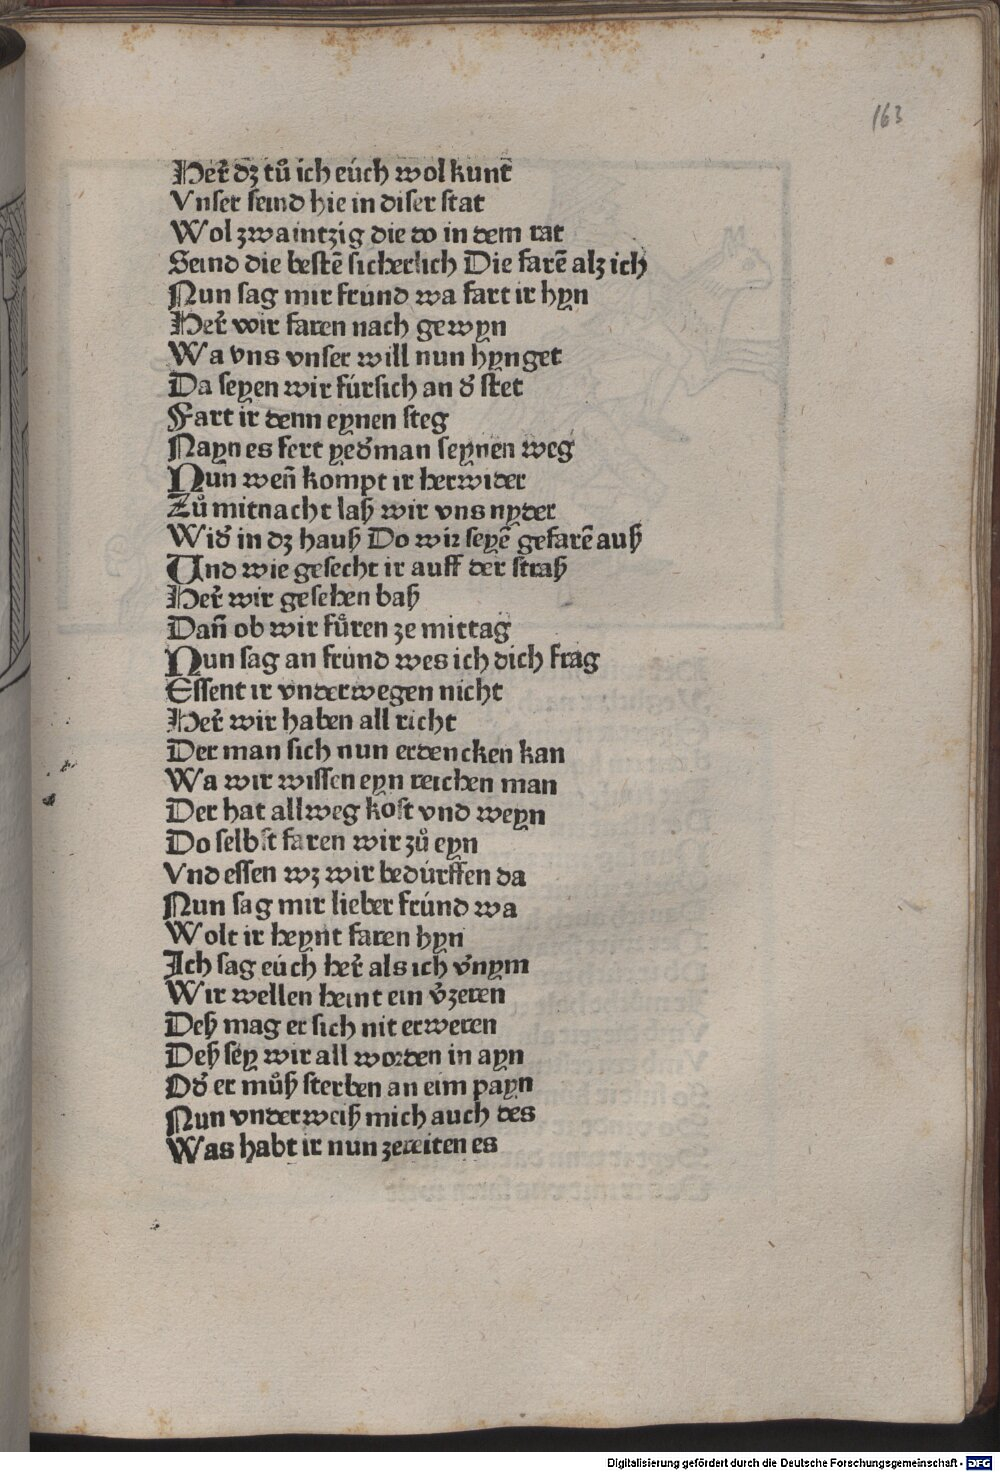 163
Her̄ dz tů ich eúch wol kunt̄
Vnser seind hie in diser stat
Wol zwaintzig die do in dem rat
Seind die bestē sicherlich Die farē alz ich
Nun sag mir frúnd wa fart ir hyn
Her̄ wir faren nach gewyn
Wa vns vnser will nun hynget
Da seyen wir fúrsich an d̕ stet
Fart ir denn eynen steg
Nayn es fert yed̕man seynen weg
Nun wen̄ kompt ir herwider
Zů mitnacht laß wir vns nyder
Wid̕ in dz hauß Do wir seyē gefarē auß
Und wie gesecht ir auff der straß
Her̄ wir gesehen baß
Dan̄ ob wir fůren ze mittag
Nun sag an frúnd wes ich dich frag
Essent ir vnderwegen nicht
Her̄ wir haben all richt
Der man sich nun erdencken kan
Wa wir wissen eyn reichen man
Der hat allweg kost vnd weyn
Do selbst faren wir zů eyn
Vnd essen wz wir bedúrffen da
Nun sag mir lieber frúnd wa
Wolt ir heynt faren hyn
Ich sag eúch her̄ als ich v̕nym
Wir wellen heint ein v̕zeren
Deß mag er sich nit erweren
Deß sey wir all worden in ayn
Od̕ er můß sterben an eim payn
Nun vnderweiß mich auch des
Was habt ir nun zereiten es
Digitalisierung gefördert durch die Deutsche Forschungsgemeinschaft - DFG